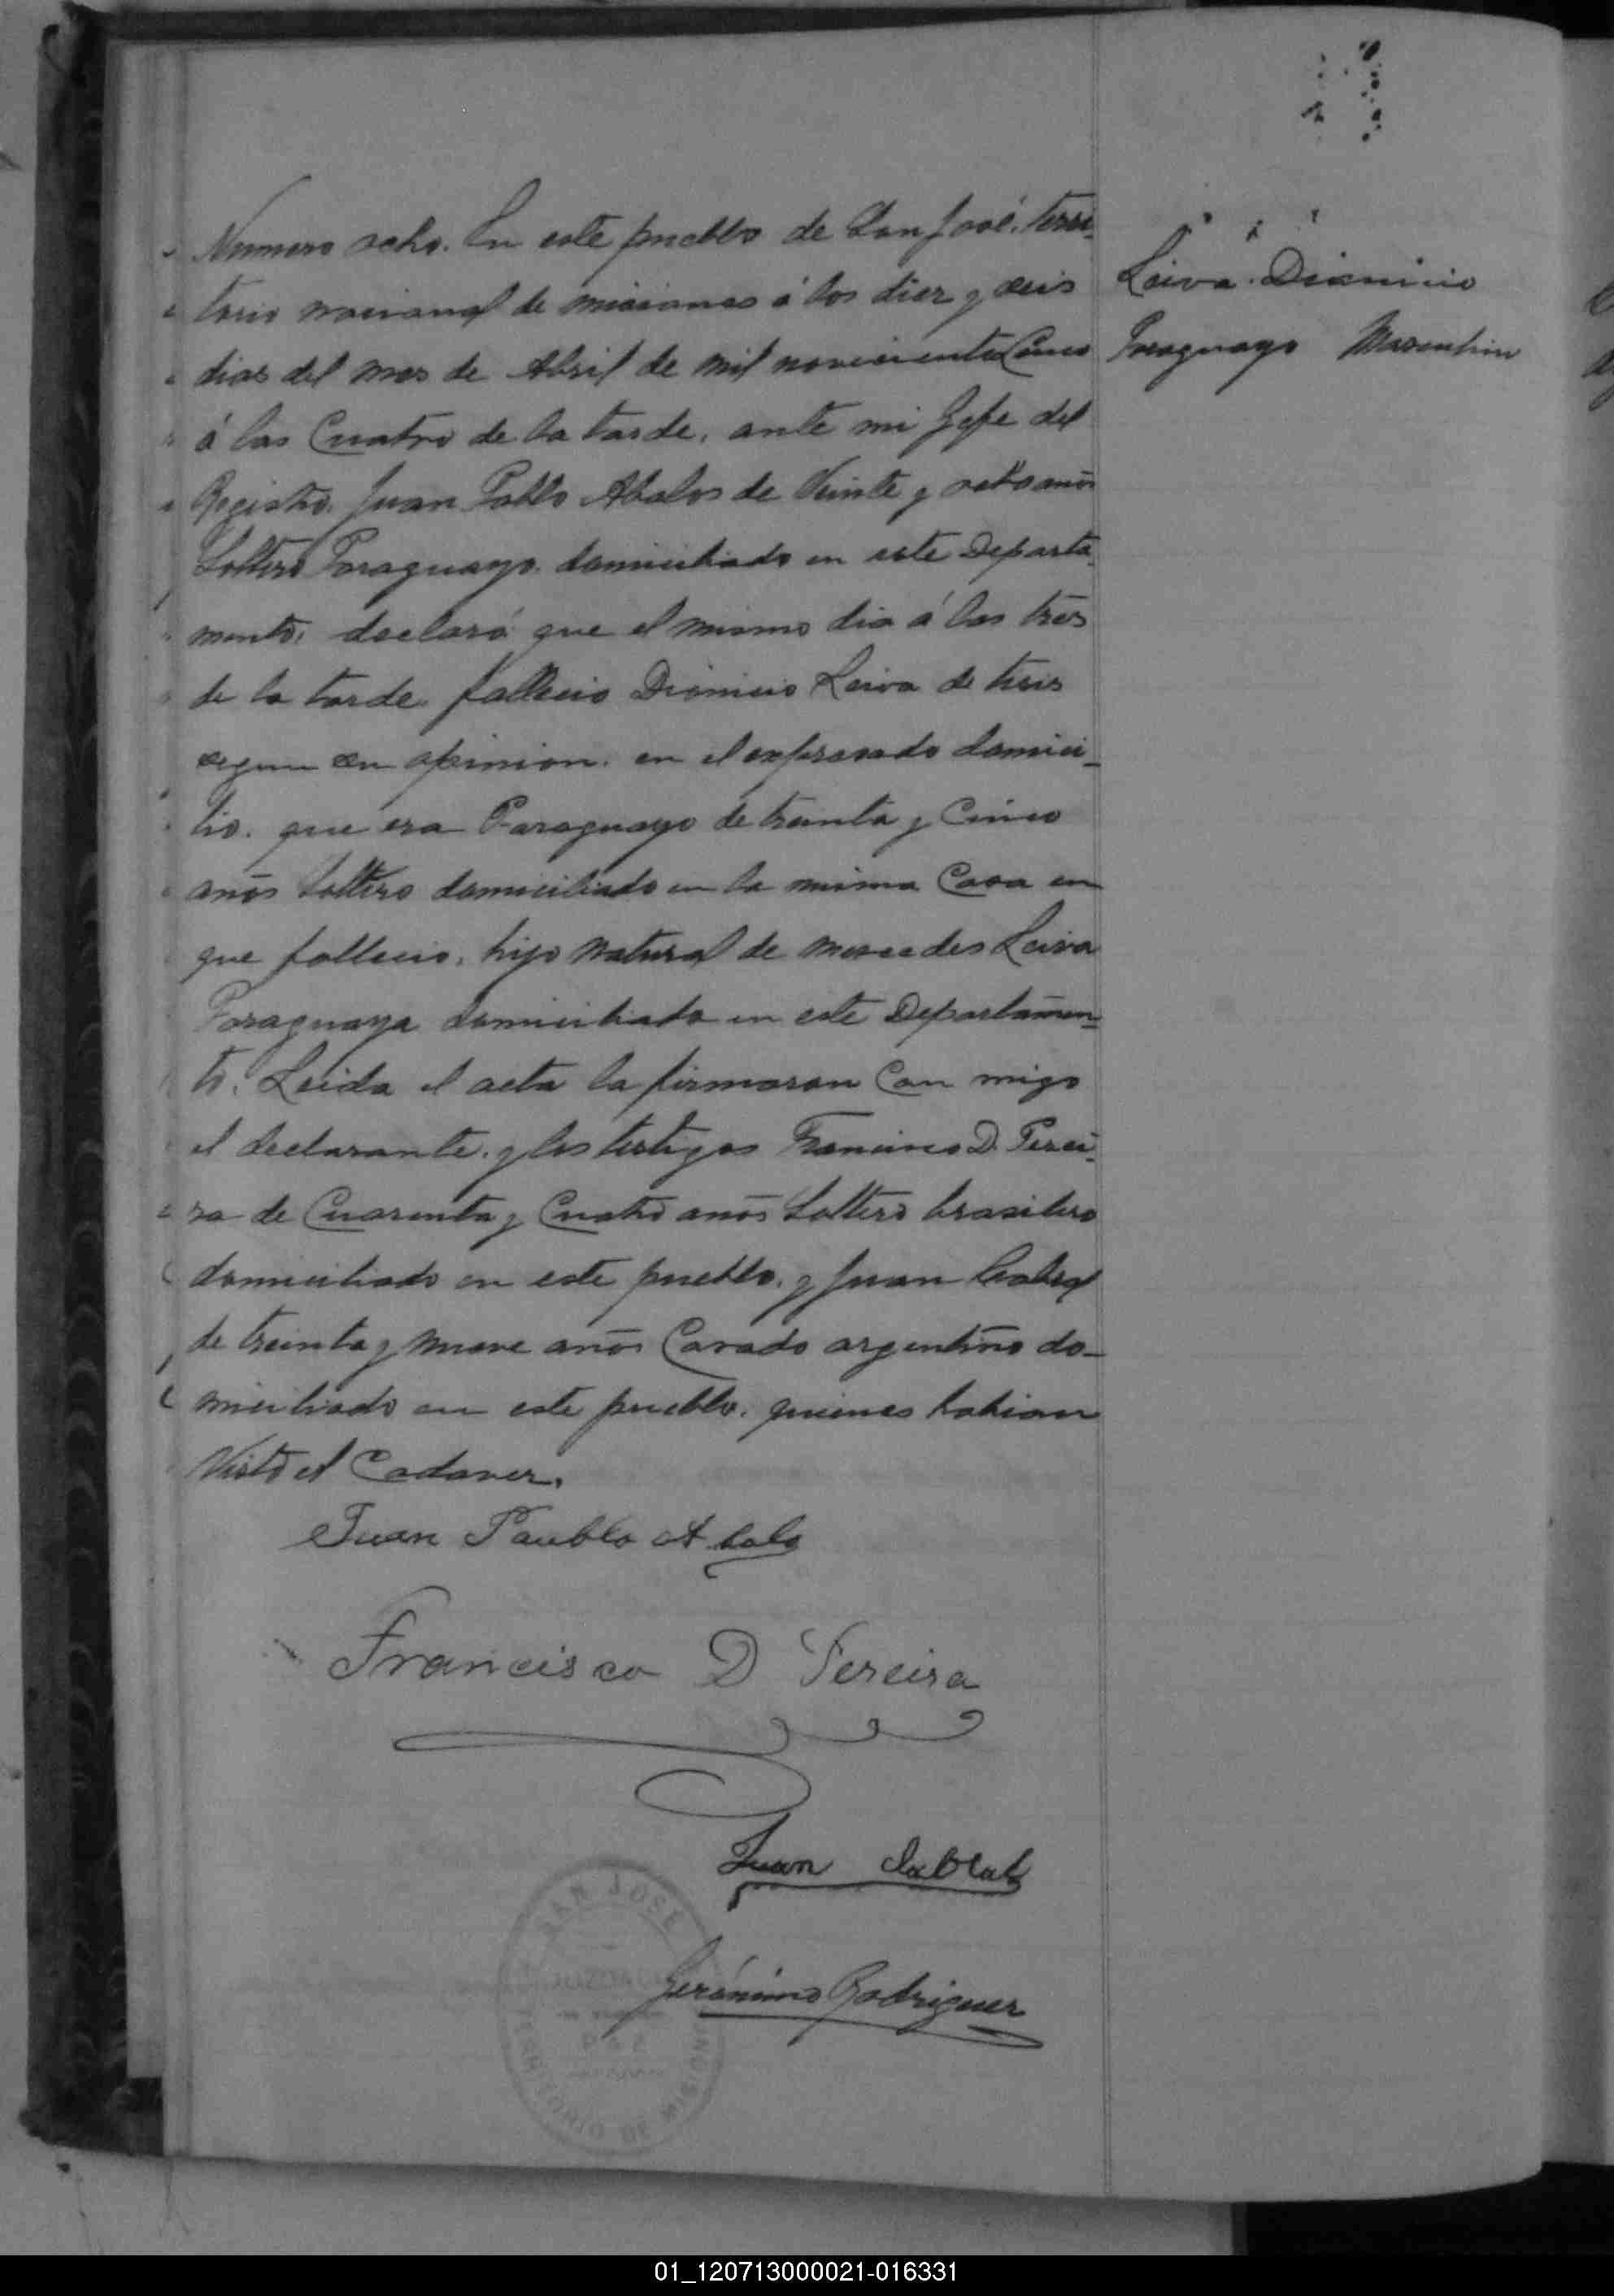 Numero ocho. En este pueblo de San José, terri-
torio nacional de misiones á los diez y seis
dias del mes de Abril de mil novecientos Cinco
á las Cuatro de la tarde, ante mi Gefe del
Registro, Juan Pablo Abalos de Veinte y ocho años
Soltero Paraguayo domiciliado en este Departa-
mento, declaró que el mismo dia á las tres
de la tarde fallecio Dionicio Leiva de tisis
segun su opinion. en el expresado domici-
lio. que era Paraguayo de treinta y Cinco
años Soltero domiciliado en la misma Casa en
que fallecio, hijo natural de mercedes Leiva
Paraguaya domiciliada en este Departamen-
to. Leida el acta la firmaron Con migo
el declarante. y los testigos Francisco D. Perei-
ra de Cuarenta y Cuatro años Soltero brasilero
domiciliado en este pueblo, y Juan Cabral
de treinta y nueve años Casado argentino do-
miciliado en este pueblo. quienes habian
Visto el Cadaver.
Leiva Dionicio
Paraguayo Masculino
Juan Paublo Abalo
Francisco D Pereira
Juan Cabral
Gerónimo Rodriguez
SAN JOSE
JUZGADO
DE PAZ
TERRITORIO DE MISIONES
01_120713000021-016331